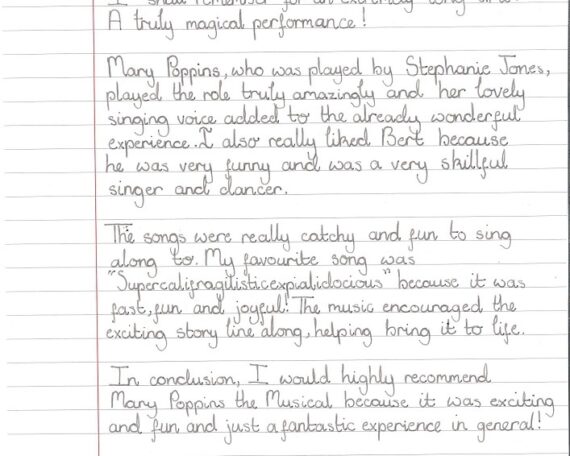 A truly magical performance!
Mary Poppins, who was played by Stephanie Jones,
played the role truly amazingly and her lovely
singing voice added to the already wonderful
experience. I also really liked Bert because
he was very funny and was a very skillful
singer and dancer.
The songs were really catchy and fun to sing
along to. My favourite song was
"Supercalifragilisticexpialidocious" because it was
fast, fun and joyful! The music encouraged the
exciting story line along, helping bring it to life.
In conclusion, I would highly recommend
Mary Poppins the Musical because it was exciting
and fun and just a fantastic experience in general!